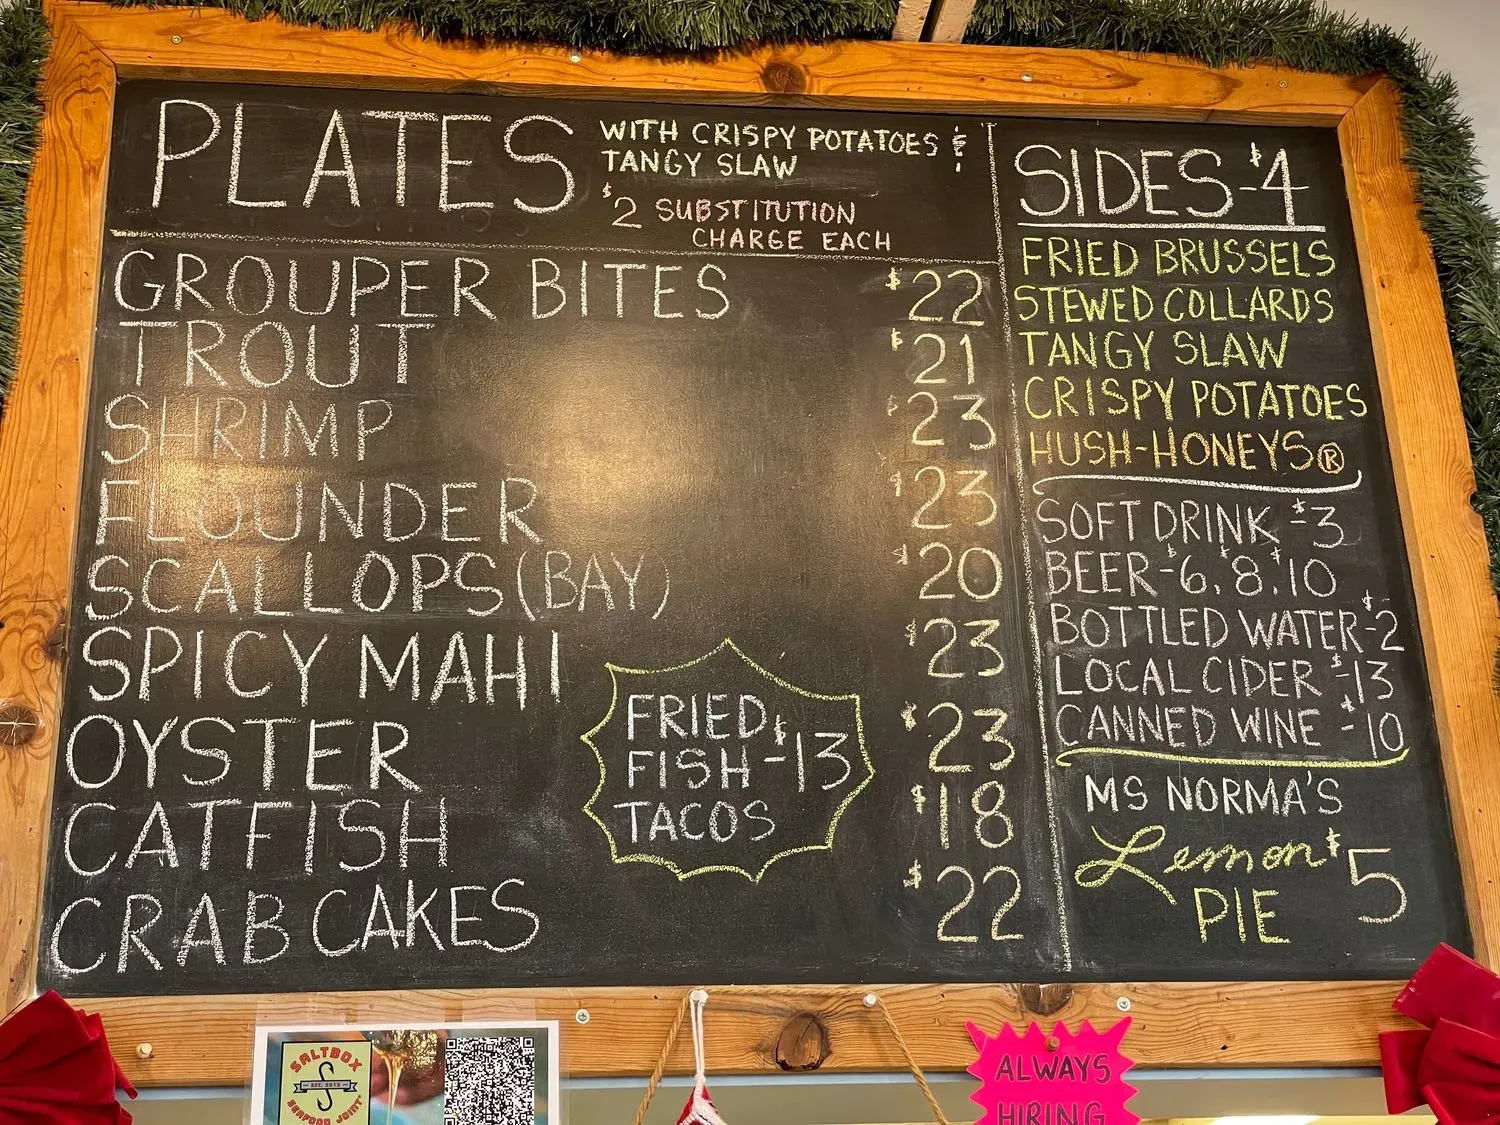 PLATES WITH CRISPY POTATOES &
TANGY SLAW
$2 SUBSTITUTION
CHARGE EACH
GROUPER BITES $22
TROUT $21
SHRIMP $23
FLOUNDER $23
SCALLOPS (BAY) $20
SPICY MAHI $23
OYSTER $23
CATFISH $18
CRAB CAKES $22
FRIED
FISH -$13
TACOS
SIDES -$4
FRIED BRUSSELS
STEWED COLLARDS
TANGY SLAW
CRISPY POTATOES
HUSH-HONEYS®
SOFT DRINK -$3
BEER -$6. $8. $10
BOTTLED WATER -$2
LOCAL CIDER -$13
CANNED WINE -$10
MS NORMA'S
Lemon $5
PIE
SALTBOX
EST. 2012
SEAFOOD JOINT
ALWAYS
HIRING